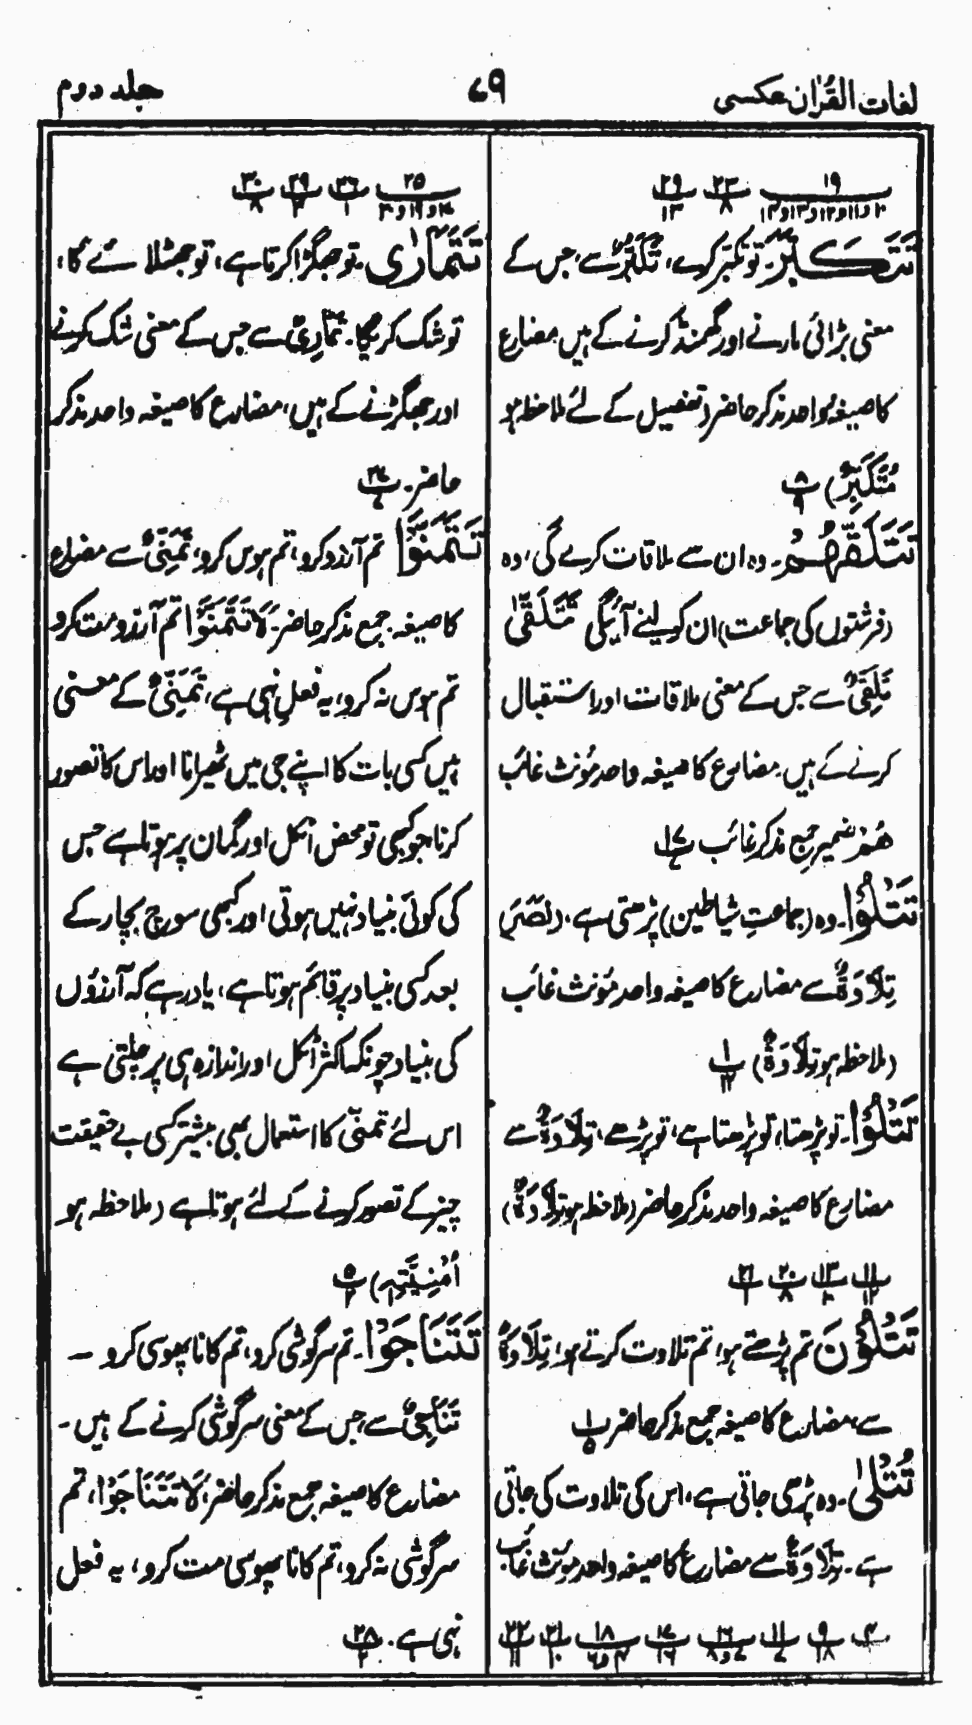 لغات القرآن عکسی
۷۹
جلد دوم
۱۹ ۲۳ ۲۹
۸ ۱۳
تَتَكَبَّرَ۔ تو تکبر کرے، تَكَبُّرٌ سے، جس کے
معنی بڑائی مارنے اور گھمنڈ کرنے کے ہیں مضارع
کا صیغہ واحد مذکر حاضر (تفصیل کے لئے ملاحظہ ہو
مُتَكَبِّرٌ) ۸
۹
تَتَلَقّٰهُمُ۔ وہ ان سے ملاقات کرے گی، وہ
(فرشتوں کی جماعت) ان کو لینے آئیگی تَتَلَقّٰی
تَلَقِّیٌ سے جس کے معنی ملاقات اور استقبال
کرنے کے ہیں۔ مضارع کا صیغہ واحد مؤنث غائب
هُمْ ضمیر جمع مذکر غائب ۱۷
۷
تَتْلُوا۔ وہ (جماعتِ شیاطین) پڑھتی ہے، (نَصَرَ)
تِلَاوَةٌ سے مضارع کا صیغہ واحد مؤنث غائب
(ملاحظہ ہو تِلَاوَةٌ) ۱
۱۲
تَتْلُوْا۔ تو پڑھتا، تو پڑھتا ہے، تو پڑھے، تِلَاوَةٌ سے
مضارع کا صیغہ واحد مذکر حاضر (ملاحظہ ہو تِلَاوَةٌ)
۱۱ ۱۳ ۲۰ ۲۱
۱۲ ۱۰ ۸ ۱
تَتْلُوْنَ تم پڑھتے ہو، تم تلاوت کرتے ہو، تِلَاوَةٌ
سے، مضارع کا صیغہ جمع مذکر حاضر ۱
۵
تُتْلٰی۔ وہ پڑھی جاتی ہے، اس کی تلاوت کی جاتی
ہے۔ تِلَاوَةٌ سے مضارع کا صیغہ واحد مؤنث غائب
۴ ۹ ۱۱ ۱۶ ۱۷ ۱۸ ۲۱ ۲۲
۱ ۱۸ ۷ ۷ و ۸ ۱۶ ۴ و ۶ ۱۰ ۱۱
۲۵ ۲۶ ۲۹ ۳۰
۱ ۳ ۸
تَتَمَارٰی۔ تو جھگڑا کرتا ہے، تو جھٹلائے گا،
تو شک کریگا۔ تَمَارِیٌ سے جس کے معنی شک کرنے
اور جھگڑنے کے ہیں، مضارع کا صیغہ واحد مذکر
حاضر۔ ۲۷
۷
تَتَمَنَّوْا تم آرزو کرو، تم ہوس کرو، تَمَنِّیٌ سے مضارع
کا صیغہ جمع مذکر حاضر۔ لَا تَتَمَنَّوْا تم آرزو مت کرو
تم ہوس نہ کرو، یہ فعلِ نہی ہے، تَمَنِّیٌ کے معنی
ہیں کسی بات کا اپنے جی میں ٹھیرانا اور اس کا تصور
کرنا، جو کبھی تو محض اٹکل اور گمان پر ہوتا ہے جس
کی کوئی بنیاد نہیں ہوتی اور کبھی سوچ بچار کے
بعد کسی بنیاد پر قائم ہوتا ہے، یاد رہے کہ آرزوں
کی بنیاد چونکہ اکثر اٹکل اور اندازہ ہی پر چلتی ہے
اس لئے تمنّی کا استعمال بھی بیشتر کسی بے حقیقت
چیز کے تصور کرنے کے لئے ہوتا ہے (ملاحظہ ہو
اُمْنِيَّتِهٖ) ۵
۲
تَتَنَاجَوْا۔ تم سرگوشی کرو، تم کانا پھوسی کرو۔
تَنَاجِیٌ سے جس کے معنی سرگوشی کرنے کے ہیں۔
مضارع کا صیغہ جمع مذکر حاضر، لَا تَتَنَاجَوْا، تم
سرگوشی نہ کرو، تم کانا پھوسی مت کرو، یہ فعل
نہی ہے۔ ۲۸
۲